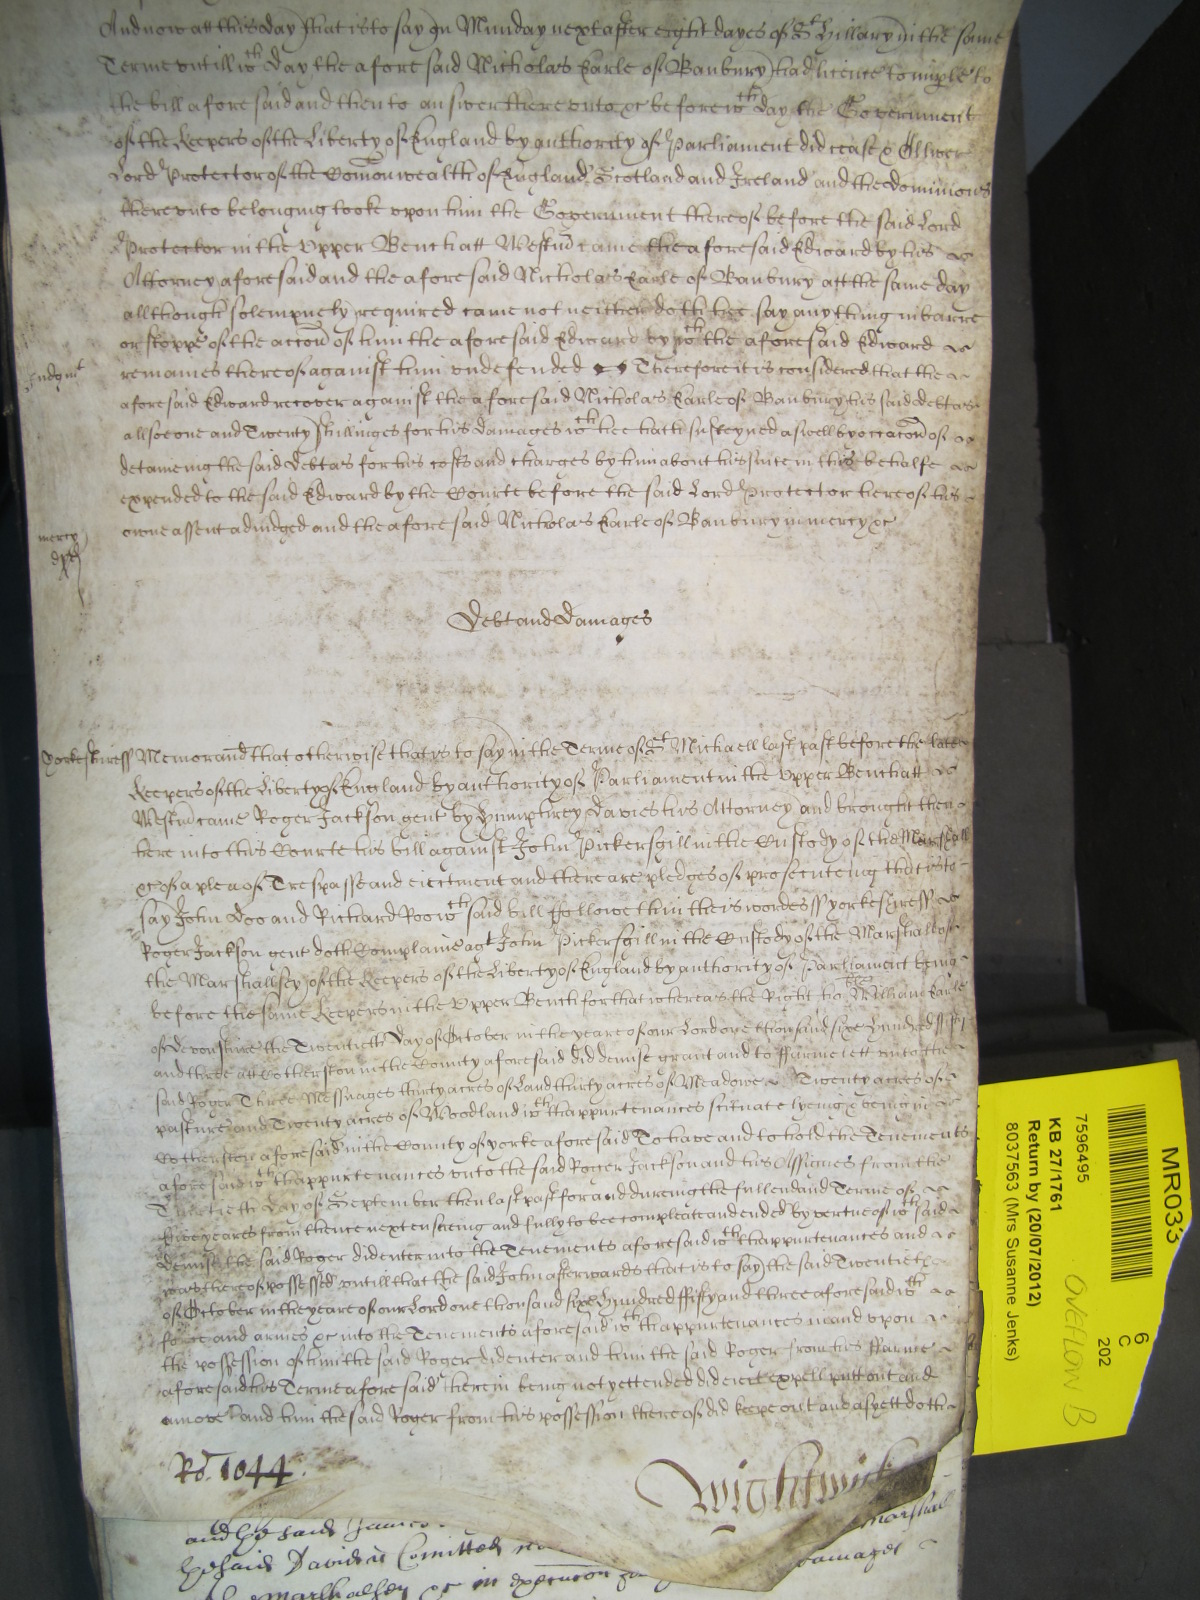 And now att this day that is to say on Munday next after eight dayes of St Hillary in the same
Terme untill wth day the aforesaid Nicholas Earle of Banbury had licence to imple to
the bill aforesaid and then to answer thereunto &c before wth day the Government
of the Keepers of the Liberty of England by authority of Parliament did cease & Olliver
Lord Protector of the Comonwealth of England Scotland and Ireland and the dominions
thereunto belonging tooke upon him the Government thereof before the said Lord
Protector in the Upper Bench att Westm came the aforesaid Edward by his
Attorney aforesaid and the aforesaid Nicholas Earle of Banbury att the same day
allthough solempnely required came not neither doth hee say any thing in barre
or stoppe of the accon of him the aforesaid Edward by wch the aforesaid Edward
remaines thereof against him undefended Therefore it is considered that the
Judgmt
aforesaid Edward recover against the aforesaid Nicholas Earle of Banbury his said debt as
allsoe one and Twenty shillinges for his damages wch hee hath susteyned aswell by occacon of
deteineing the said debt as for his costs and charges by him about his suite in this behalfe
expended to the said Edward by the Courte before the said Lord Protector here of his
owne assent adiudged and the aforesaid Nicholas Earle of Banbury in mercy &c
mercy
Debt and Damages
Yorkeshire ss Memorand that otherwise that ys to say in the Terme of St Michaell last past before the late
Keepers of the Liberty of England by authority of Parliament in the Upper Bench att
Westm came Roger Jackson gent by Humphrey Davies his Attorney and brought then
here into this Courte his bill against John Pickersgill in the Custody of the Marshall
&c of a plea of Trespasse and eiectment and there are pledges of prosecuteing that is to
say John Doo and Richard Roo wch said bill followeth in theis wordes ss yorkeshire ss
Roger Jackson gent doth Complaine agt John Pickersgill in the Custody of the Marshall of
the Marshallsey of the Keepers of the Liberty of England by authority of Parliament being
before the same Keepers in the Upper Bench for that whereas the Right ho: William Earle
of Devonshire the Twentieth day of October in the yeare of our Lord one thousand sixe hundred fifty
and three att Cotherston in the County aforesaid did demise grant and to ffarme lett unto the
said Roger Three Messuages thirty acres of Land thirty acres of Meadowe Twenty acres of
pasture and Twenty acres of Woodland wth thappurtenances scituate lyeing & being in
Cotherston aforesaid in the County of yorke aforesaid To have and to hold the Tenements
aforesaid wth thappurtenances unto the said Roger Jackson and his Assignes from the
Twentieth day of September then last past for and dureing the full end and Terme of
ffive yeares from thence next ensueing and fully to bee compleate and ended by vertue of wch said
demise the said Roger did enter into the Tenements aforesaid wth thappurtenances and
was thereof possessed untill that the said John afterwards that is to say the said Twentieth
of October in the yeare of our Lord one thousand sixe hundred fifty and three aforesaid wth
force and armes &c into the Tenements aforesaid wth thappurtenances in and upon
the possession of him the said Roger did enter and him the said Roger from his ffarme
aforesaid his Terme aforesaid therein being not yett ended did eiect expell putt out and
amove and him the said Roger from his possession thereof did keepe out and as yett doth
Ro. 1044 Wightwick
and the said James
the said David is Comitted
marshall
marshalsey &c in execucon for
damages
MR033
6
C
202
7596495
KB 27/1761
Return by (20/07/2012)
8037563 (Mrs Susanne Jenks)
OVERFLOW B